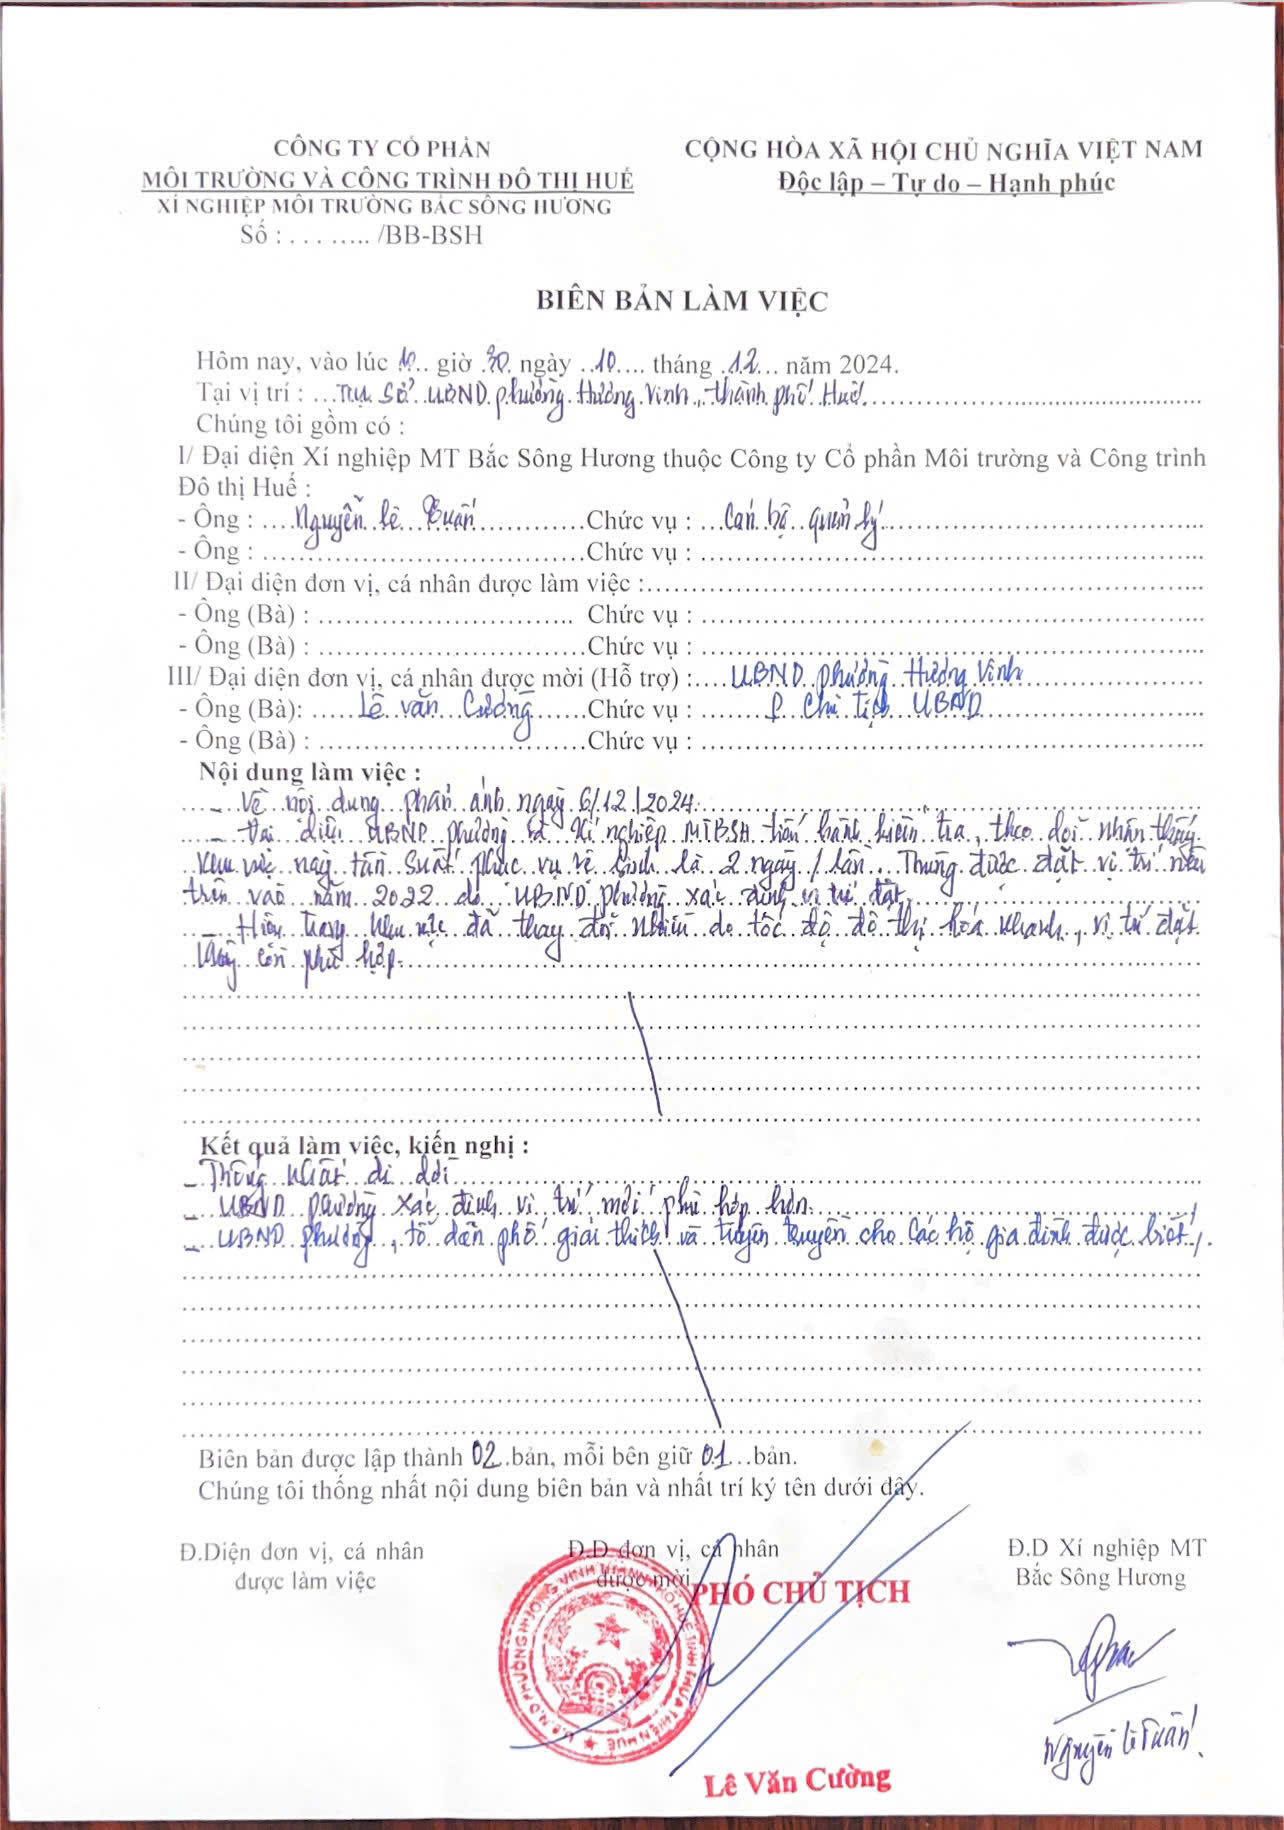 CÔNG TY CỔ PHẦN
MÔI TRƯỜNG VÀ CÔNG TRÌNH ĐÔ THỊ HUẾ
XÍ NGHIỆP MÔI TRƯỜNG BẮC SÔNG HƯƠNG
Số : . . . ….. /BB-BSH
CỘNG HÒA XÃ HỘI CHỦ NGHĨA VIỆT NAM
Độc lập – Tự do – Hạnh phúc
BIÊN BẢN LÀM VIỆC
Hôm nay, vào lúc 10 giờ 30 ngày 10 tháng 12 năm 2024.
Tại vị trí : Trụ Sở UBND phường Hương Vinh, thành phố Huế
Chúng tôi gồm có :
I/ Đại diện Xí nghiệp MT Bắc Sông Hương thuộc Công ty Cổ phần Môi trường và Công trình
Đô thị Huế :
- Ông : Nguyễn Lê Tuấn Chức vụ : Cán bộ quản lý
- Ông : Chức vụ :
II/ Đại diện đơn vị, cá nhân được làm việc :
- Ông (Bà) : Chức vụ :
- Ông (Bà) : Chức vụ :
III/ Đại diện đơn vị, cá nhân được mời (Hỗ trợ) : UBND phường Hương Vinh
- Ông (Bà): Lê Văn Cường Chức vụ : P Chủ tịch UBND
- Ông (Bà) : Chức vụ :
Nội dung làm việc :
- Về nội dung phản ánh ngày 6/12/2024
- Đại diện UBND phường và Xí nghiệp MTBSH tiến hành kiểm tra, theo dõi nhận thấy
khu vực này tần suất phục vụ vệ sinh là 2 ngày / lần. Thùng được đặt vị trí nêu
trên vào năm 2022 do UBND phường xác định vị trí đặt.
Hiện trạng khu vực đã thay đổi nhiều do tốc độ đô thị hóa nhanh, vị trí đặt
không còn phù hợp.
Kết quả làm việc, kiến nghị :
- Thống nhất di dời
- UBND phường xác định vị trí mới phù hợp hơn.
- UBND phường, tổ dân phố giải thích và tuyên truyền cho các hộ gia đình được biết.
Biên bản được lập thành 02 bản, mỗi bên giữ 01 bản.
Chúng tôi thống nhất nội dung biên bản và nhất trí ký tên dưới đây.
Đ.Diện đơn vị, cá nhân
được làm việc
Đ.D đơn vị, cá nhân
được mời
PHÓ CHỦ TỊCH
U.B.N.D PHƯỜNG HƯƠNG VINH THÀNH PHỐ HUẾ TỈNH THỪA THIÊN HUẾ
Lê Văn Cường
Đ.D Xí nghiệp MT
Bắc Sông Hương
Nguyễn Lê Tuấn